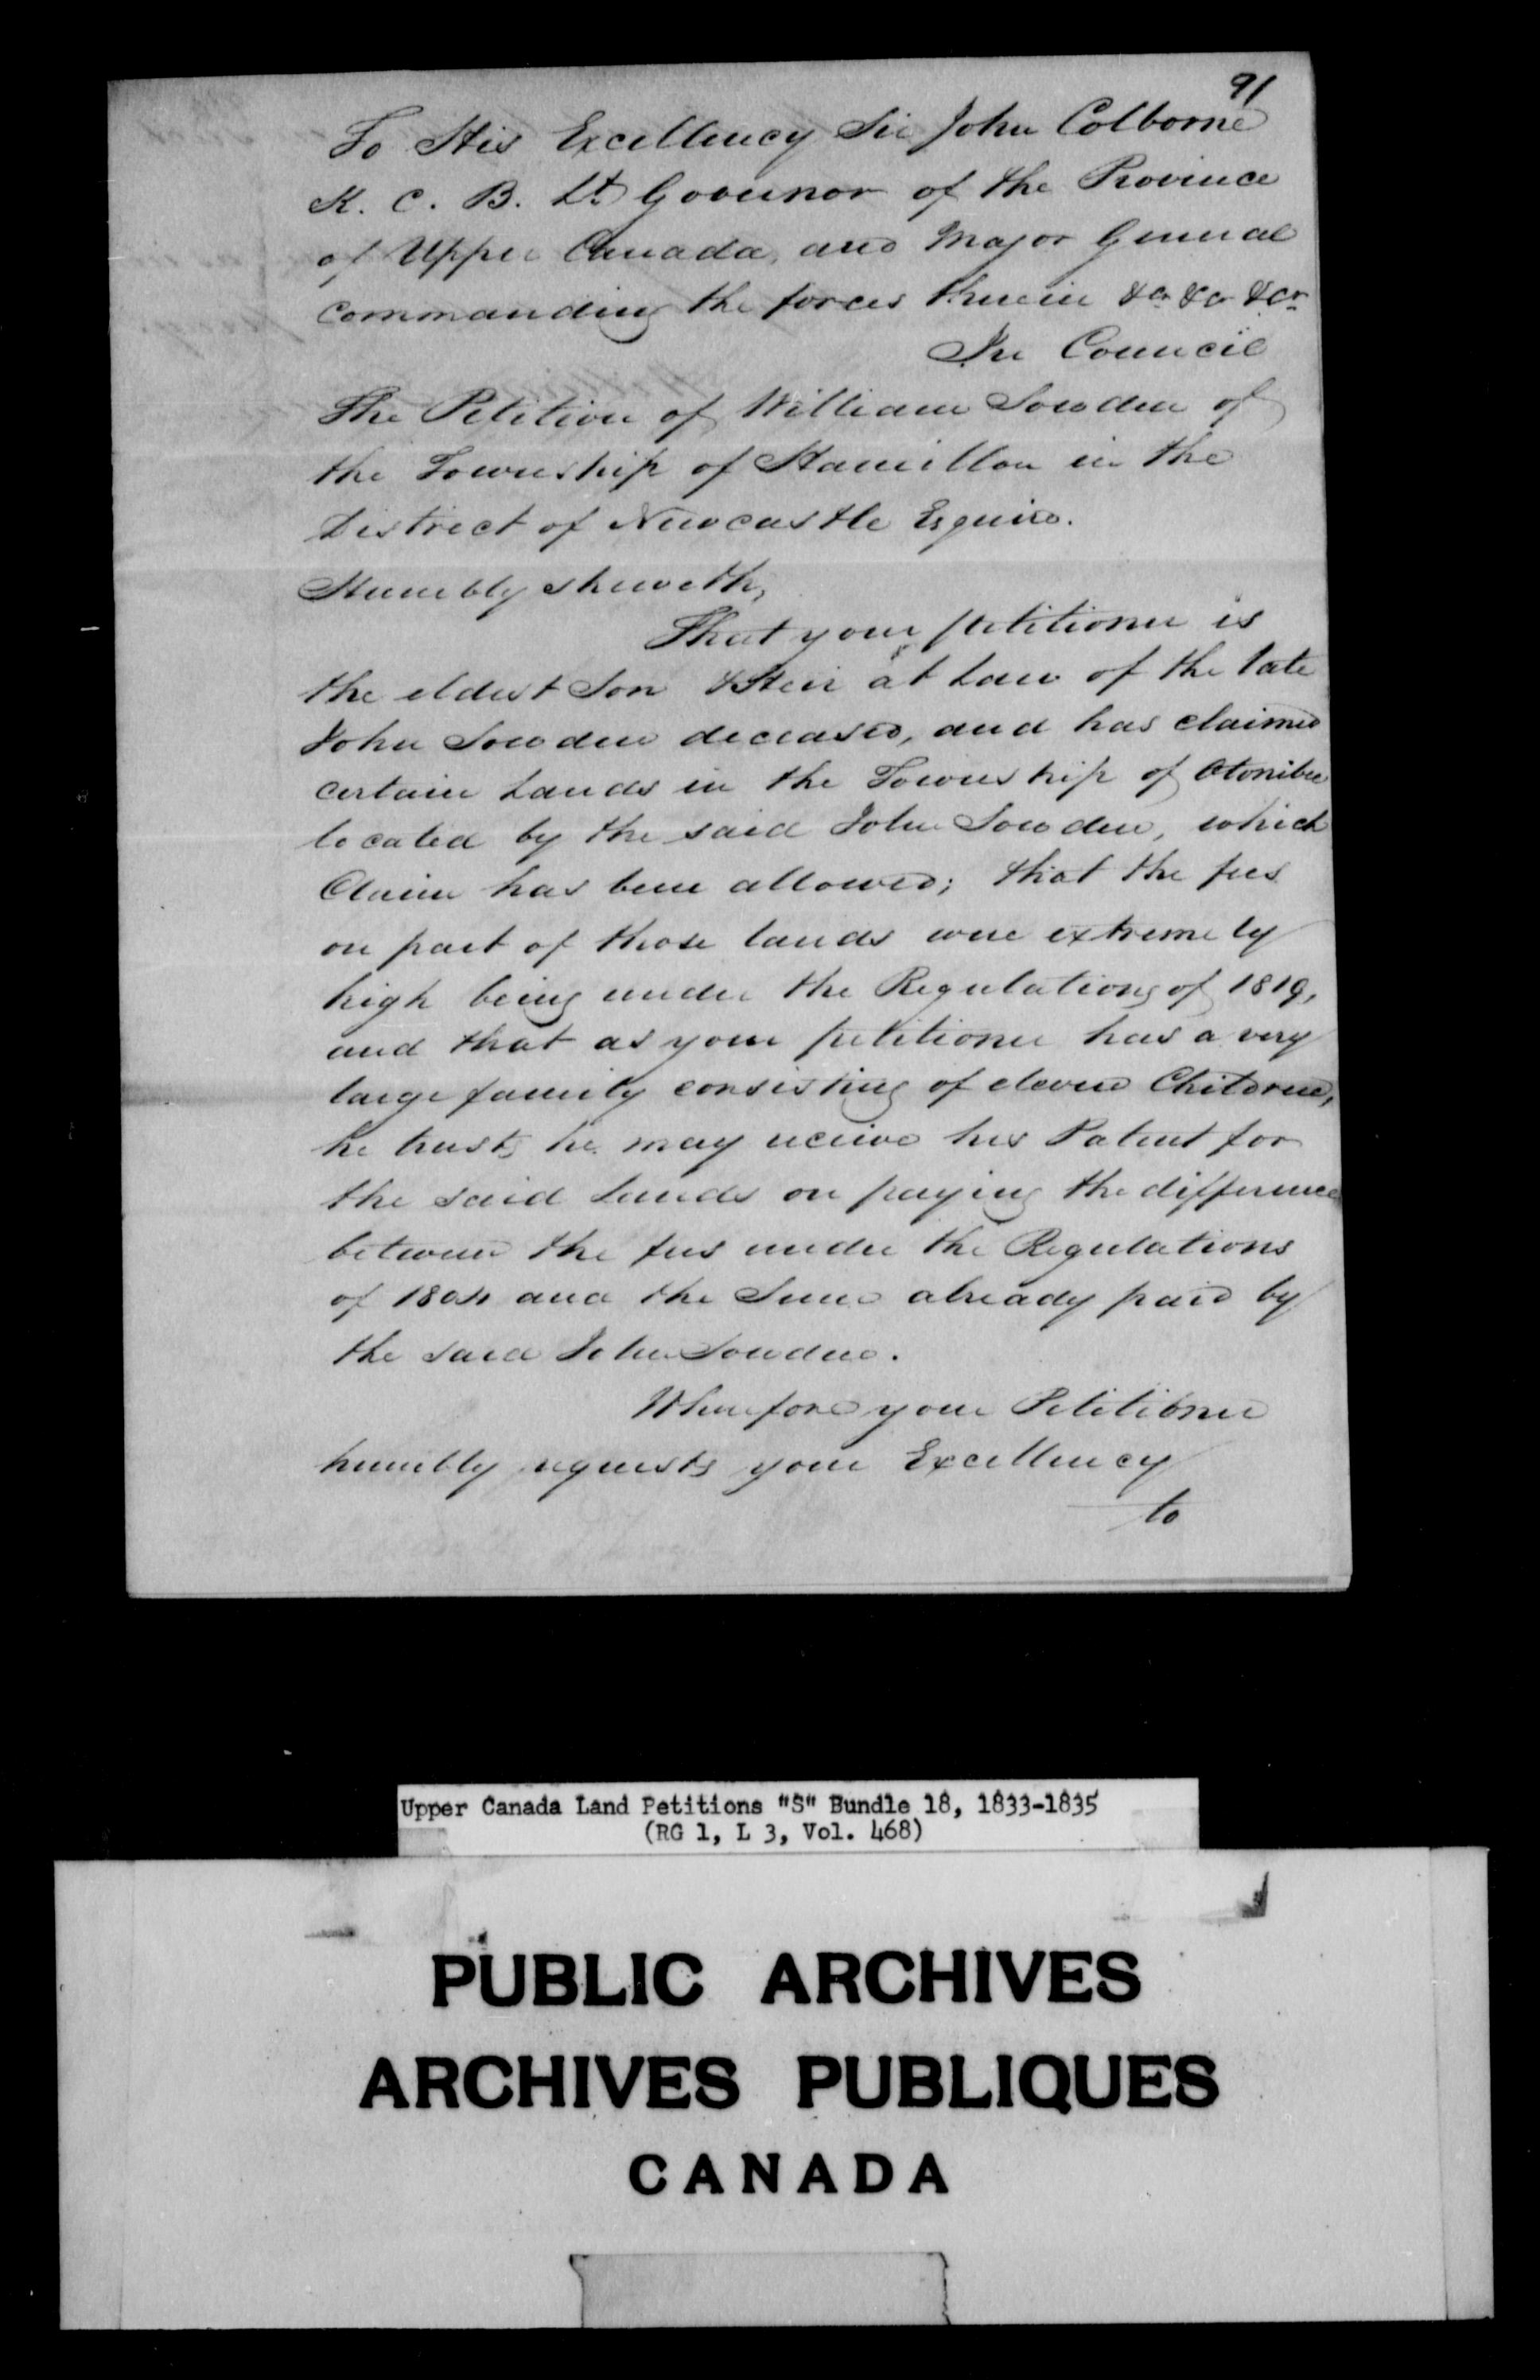 91
To His Excellency Sir John Colborne
K. C. B. Lt. Governor of the Province
of Upper Canada, and Major General
Commanding the forces therein &c &c &c
In Council
The Petition of William Sowden of
the Township of Hamilton in the
District of Newcastle Esquire.
Humbly sheweth,
That your petitioner is
the eldest Son & Heir at Law of the late
John Sowden deceased, and has claimed
certain Lands in the Township of Otonibee
located by the said John Sowden, which
Claim has been allowed; that the fees
on part of those lands were extremely
high being under the Regulations of 1819,
and that as your petitioner has a very
large family consisting of eleven Children,
he trusts he may receive his Patent for
the said Lands on paying the difference
between the fees under the Regulations
of 1804 and the Sum already paid by
the said John Sowden.
Wherefore your Petitioner
humbly requests your Excellency
to
Upper Canada Land Petitions "S" Bundle 18, 1833-1835
(RG 1, L 3, Vol. 468)
PUBLIC ARCHIVES
ARCHIVES PUBLIQUES
CANADA